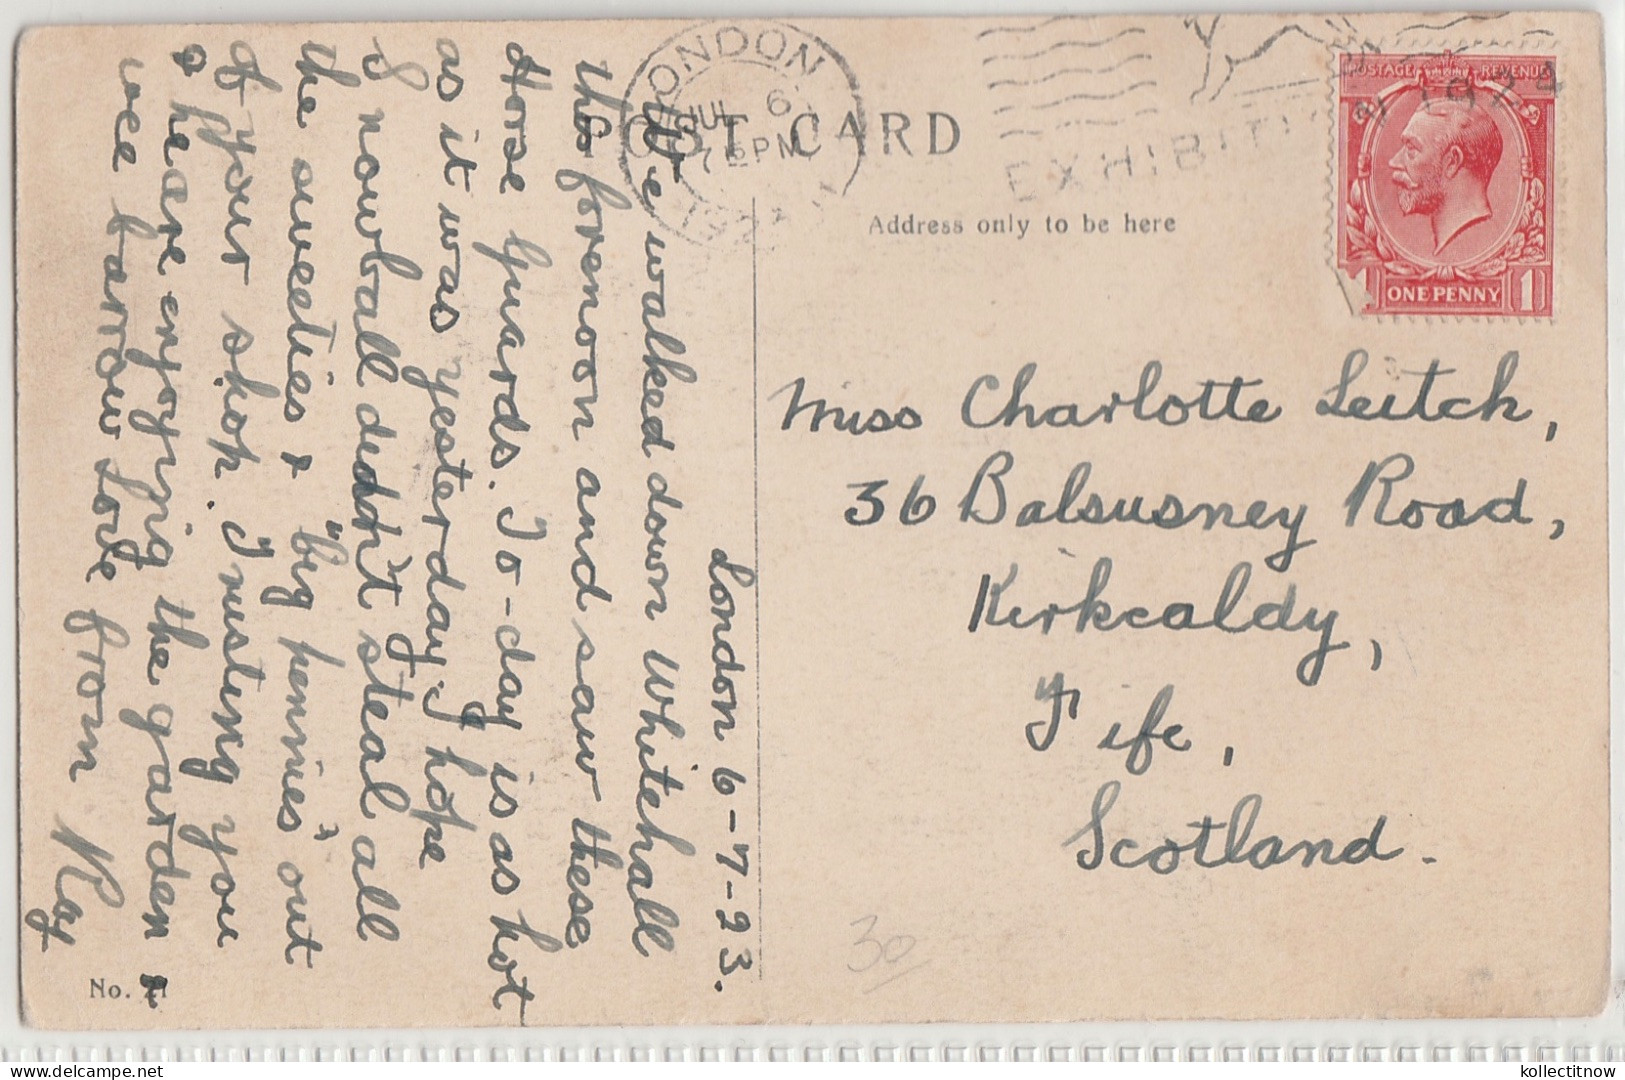 POST CARD
Address only to be here
LONDON
JUL 6
7 15 PM
EXHIBITION
1924
POSTAGE REVENUE
1 ONE PENNY 1
London 6-7-23.
We walked down Whitehall
this forenoon and saw these
Horse Guards. To-day is as hot
as it was yesterday. I hope
Snowball diddn't steal all
the sweeties & "big pennies" out
of your shop. Trusting you
& are enjoying the garden &
wee barrow Love from Ray
No. 21
Miss Charlotte Leitch,
36 Balsusney Road,
Kirkcaldy,
Fife,
Scotland.
30
kollectitnow